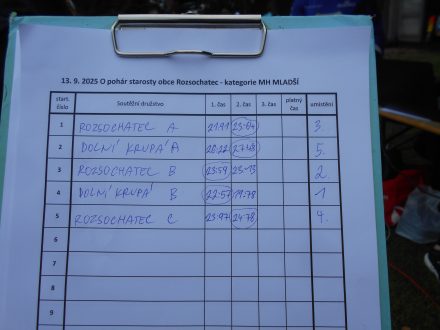 13. 9. 2025 O pohár starosty obce Rozsochatec - kategorie MH MLADŠÍ
start. číslo Soutěžní družstvo 1. čas 2. čas 3. čas platný čas umístění
1 ROZSOCHATEC A 23:04 3.
2 DOLNÍ KRUPÁ A 27:48 5.
3 ROZSOCHATEC B 23:59 25:13 2.
4 DOLNÍ KRUPÁ B 22:57 19:78 1
5 ROZSOCHATEC C 23:97 24:78 4.
6
7
8
9